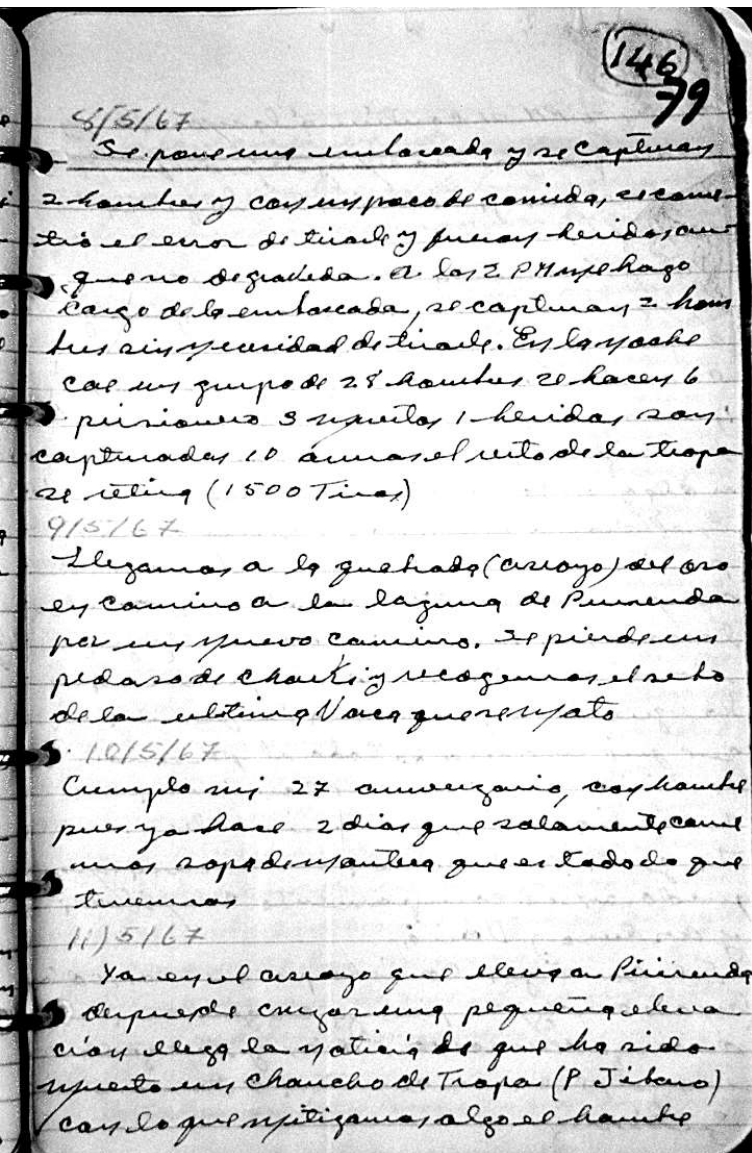 146
79
8/5/67
Se pone una emboscada y se capturan
2 hombres y con un poco de comida, se come-
tió el error de tirarle y fueron heridos, aun
que no de gravedad. A las 2 PM me hago
cargo de la emboscada, se capturan 2 hom
bres sin necesidad de tirarle. En la noche
cae un grupo de 28 hombres se hacen 6
prisionero 3 muertos 1 heridos son
capturadas 10 armas el resto de la tropa
se retira (1500 Tiros)
9/5/67
Llegamos a la quebrada (arroyo) del oro
en camino a la laguna de Pirirenda
por un nuevo camino. Se pierde un
pedaso de charki y recogemos el sebo
de la ultima Vaca que se mato
10/5/67
Cumplo mi 27 aniverzario, con hambre
pues ya hace 2 dias que solamente come
mos sopa de manteca que es todo lo que
tenemos
11/5/67
Ya en el arroyo que lleva a Pirirenda
despues de cruzar una pequeña eleva
ción llega la noticia de que ha sido
muerto un Chancho de Tropa (P Jibaro)
con lo que mitigamos algo el hambre